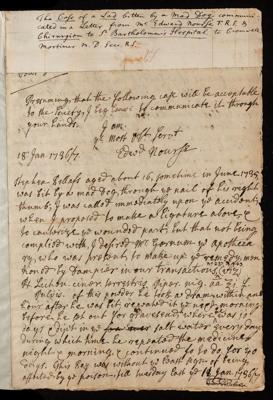 The Case of a Lad bitten by a Mad Dog, communi-
cated in a Letter from Mr Edward Nourse F.R.S. &
Chirurgion to St Bartholomew's Hospital to Cromwell
Mortimer M.D. Secr. R.S.
Presuming that the following case will be acceptable
to the Society, I beg leave to communicate it through
your hands.
I am
yr most obt Servt
18 Jan 1736/7. Edwd Nourse
Stephen Bellass aged about 16, sometime in June 1735
was bit by a mad Dog, through ye nail of his right
thumb, I was called immediatly upon ye accident,
when I proposed to make a ligature above, &
to cauterize ye wounded part; but that not being
complied with, I desired Mr ye Apotheca
ry, who was present to make up ye remedy men
tioned by Dampier in our Transactions
Lichen ciner. terrestris, Piper. nig. aa
of this powder he took a dram within an
hour after he was bit, repeated it ye next morning
before he set out for Gravesend where he was 10
days & dipt in ye salt water every day
during which time he repeated the medicine
night & morning, & continued so to do for 40
days. This Boy was without ye least sign of being
affected by ye poison, till tuesday last ye Jan. 1736/7